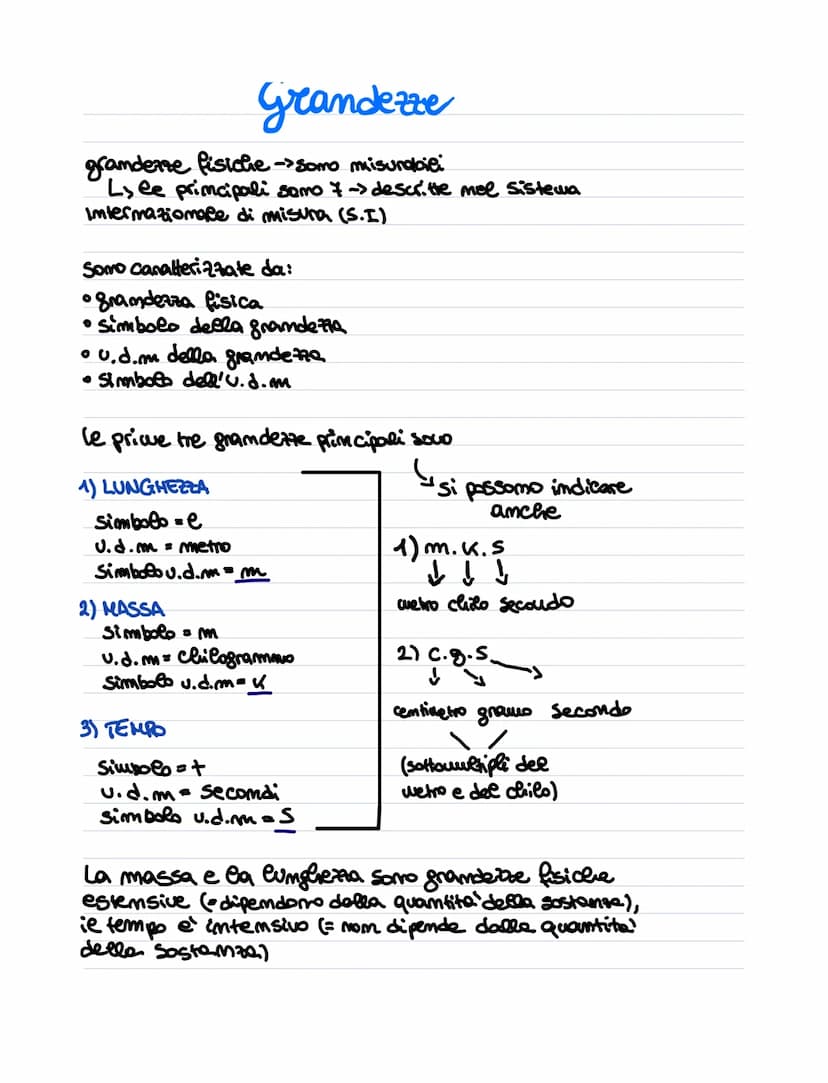 Grandezze
grandezze fisiche -> sono misurabili
↳ le principali sono 7 -> descritte nel sistema
internazionale di misura (S.I)
sono caratterizzate da:
• grandezza fisica
• simbolo della grandezza
• u.d.m della grandezza
• simbolo dell'u.d.m
le prime tre grandezze principali sono
↳ si possono indicare
anche
1) LUNGHEZZA
simbolo = l
u.d.m = metro
simbolo u.d.m = m
2) MASSA
simbolo = m
u.d.m = chilogrammo
simbolo u.d.m = K
3) TEMPO
simbolo = t
u.d.m = secondi
simbolo u.d.m = S
1) m.K.S
metro chilo secondo
2) c.g.S
centimetro grammo secondo
(sottomultipli del
metro e del chilo)
La massa e la lunghezza sono grandezze fisiche
estensive (= dipendono dalla quantità della sostanza),
il tempo è intensivo (= non dipende dalla quantità
della sostanza)